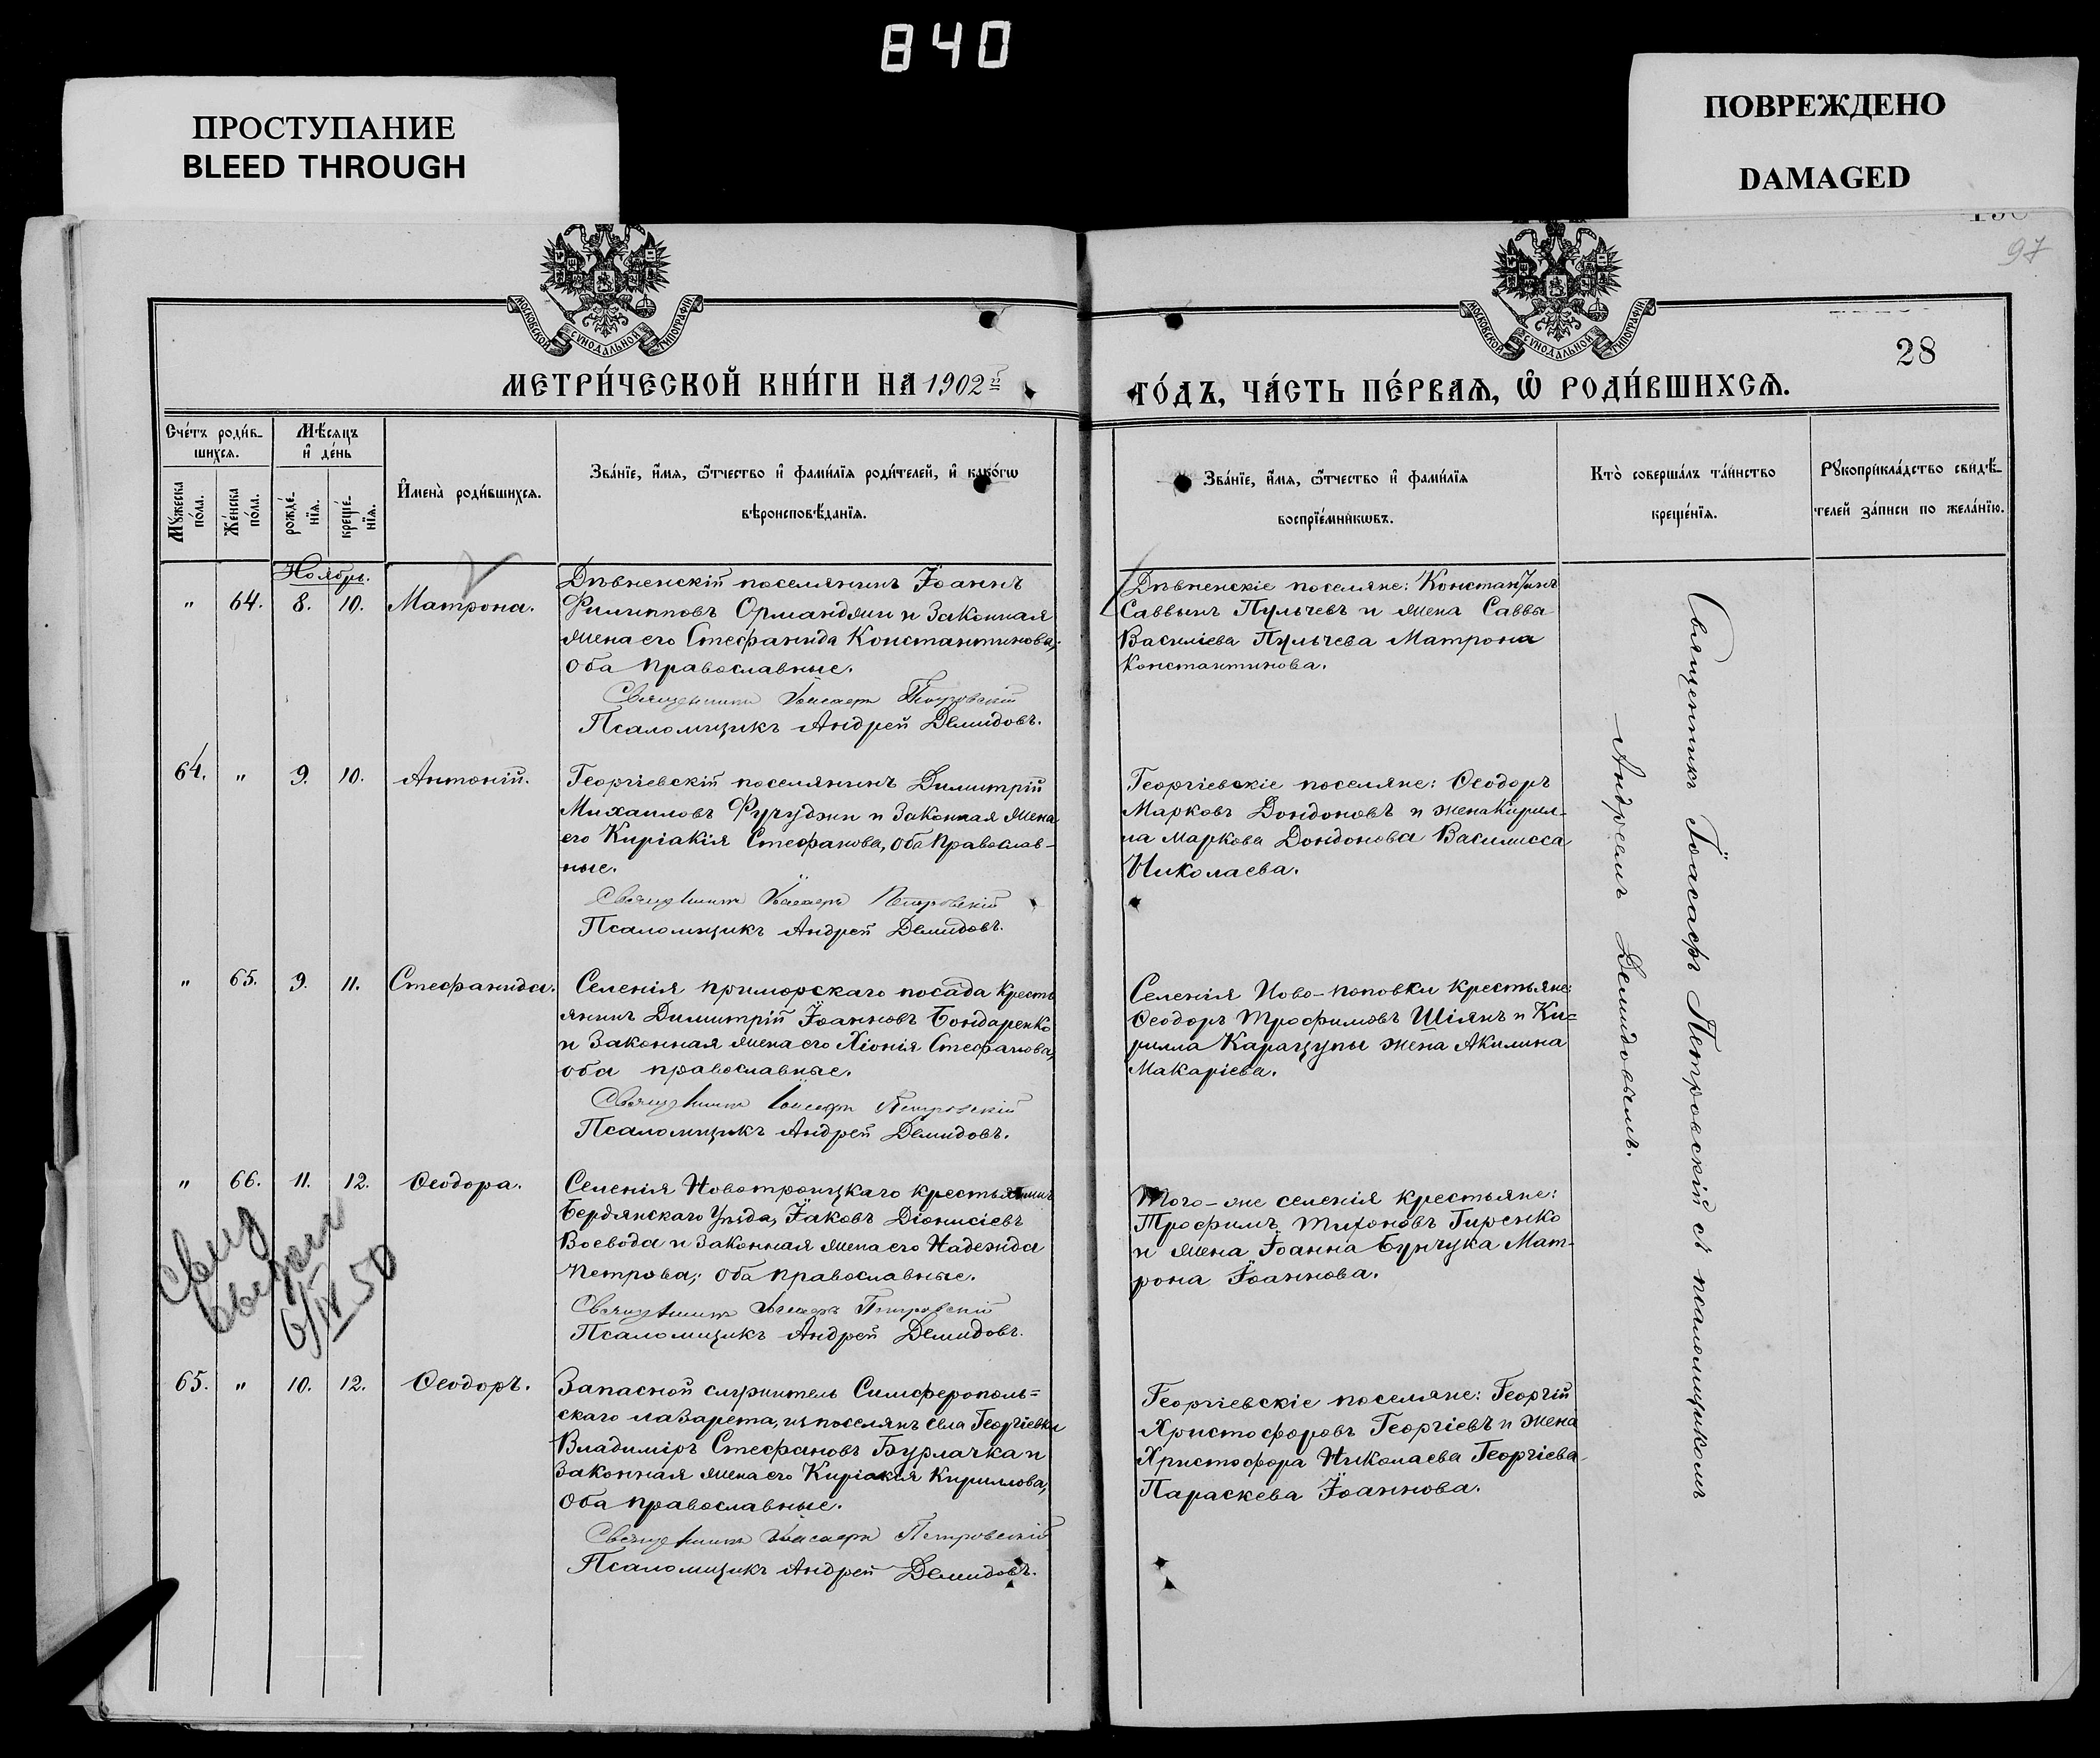 840
ПРОСТУПАНИЕ
BLEED THROUGH
ПОВРЕЖДЕНО
DAMAGED
97
МОСКОВСКОЙ СѴНОДАЛЬНОЙ ТИПОГРАФІИ
МОСКОВСКОЙ СѴНОДАЛЬНОЙ ТИПОГРАФІИ
28
МЕТРИ́ЧЕСКОЙ КНИ́ГИ НА 1902й
ГО́ДЪ, ЧА́СТЬ ПЕ́РВАѦ, Ѿ РОДИ́ВШИХСѦ.
Сче́тъ роди́в-
шихсѧ.
Мѣ́сѧцъ
и҆ де́нь
Мꙋ́жеска
по́ла.
Же́нска
по́ла.
рожде́-
нїѧ.
креще́-
нїѧ.
И҆мена̀ роди́вшихсѧ.
Зва́нїе, и҆́мѧ, ѻ҆́тчество и҆ фами́лїѧ роди́телей, и҆ како́гѡ
вѣроисповѣ́данїѧ.
Зва́нїе, и҆́мѧ, ѻ҆́тчество и҆ фами́лїѧ
воспрїе́мникѡвъ.
Кто̀ соверша́лъ та́инство
креще́нїѧ.
Рꙋкоприкла́дство свидѣ́-
телей за́писи по жела́нїю.
Ноябрь.
" 64. 8. 10. Матрона.
Дѣвненскій поселянинъ Іоаннъ
Филипповъ Орманджи и законная
жена его Стефанида Константинова;
оба православные.
Священникъ Іоасафъ Петровскій
Псаломщикъ Андрей Демидовъ.
Дѣвненскіе поселяне: Константинъ
Саввинъ Пульчевъ и жена Саввы
Василіева Пульчева Матрона
Константинова.
64. " 9. 10. Антоній.
Георгіевскій поселянинъ Димитрій
Михаиловъ Фучуджи и законная жена
его Киріакія Стефанова, оба православ-
ные.
Священникъ Іоасафъ Петровскій
Псаломщикъ Андрей Демидовъ.
Георгіевскіе поселяне: Ѳеодоръ
Марковъ Дондоновъ и жена Кирил-
ла Маркова Дондонова Василисса
Николаева.
" 65. 9. 11. Стефанида.
Селенія приморскаго посада кресть
янинъ Димитрій Іоанновъ Бондаренко
и законная жена его Хіонія Стефанова,
оба православные.
Священникъ Іоасафъ Петровскій
Псаломщикъ Андрей Демидовъ.
Селенія Ново-поповки крестьяне:
Ѳеодоръ Трофимовъ Шіянъ и Ки=
рилла Карацупы жена Акилина
Макаріева.
" 66. 11. 12. Ѳеодора.
Селенія Новотроицкаго крестьянинъ
Бердянскаго уѣзда, Іаковъ Діонисіевъ
Воевода и законная жена его Надежда
Петрова; оба православные.
Священникъ Іоасафъ Петровскій
Псаломщикъ Андрей Демидовъ.
Того-же селенія крестьяне:
Трофимъ Тихоновъ Гиренко
и жена Іоанна Бунчука Мат-
рона Іоаннова.
6/IV 50
65. " 10. 12. Ѳеодоръ.
Запасной служитель Симферополь=
скаго лазарета, изъ поселянъ села Георгіевки
Владиміръ Стефановъ Бурлачка и
законная жена его Киріакія Кириллова,
оба православные.
Священникъ Іоасафъ Петровскій
Псаломщикъ Андрей Демидовъ.
Георгіевскіе поселяне: Георгій
Христофоровъ Георгіевъ и жена
Христофора Николаева Георгіева
Параскева Іоаннова.
Священникъ Іоасафъ Петровскій съ псаломщикомъ
Андреемъ Демидовымъ.